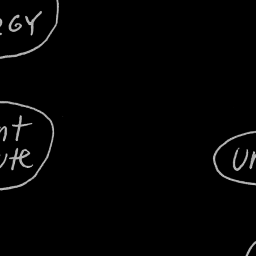 RGY
nt
ute
Un